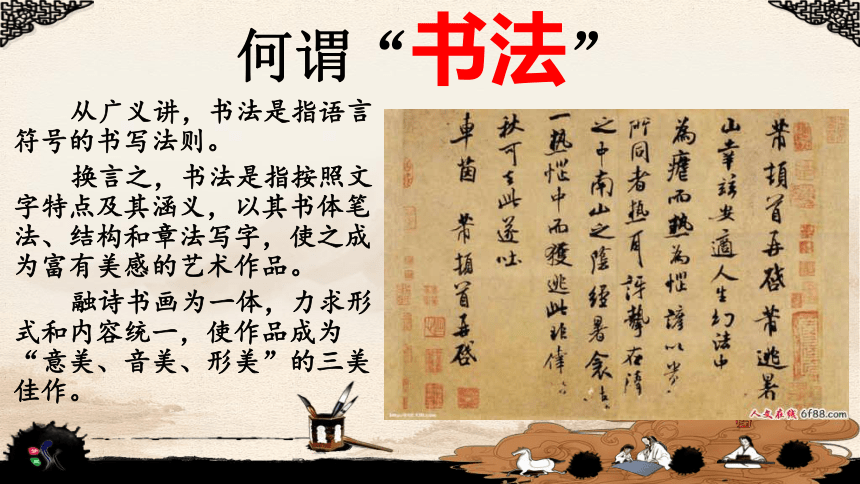 何谓“书法”
从广义讲，书法是指语言
符号的书写法则。
换言之，书法是指按照文
字特点及其涵义，以其书体笔
法、结构和章法写字，使之成
为富有美感的艺术作品。
融诗书画为一体，力求形
式和内容统一，使作品成为
“意美、音美、形美”的三美
佳作。
芾頓首再啓芾逃暑
山幸兹安適人生幻法中
為瘧而熱為惱諺以
所同者熱耳訝摯在清
之中南山之陰經暑衾
一熱惱中而獲逃此非
秋可去此遂吐
車茵 芾頓首再啓
人文在线 6f88.com